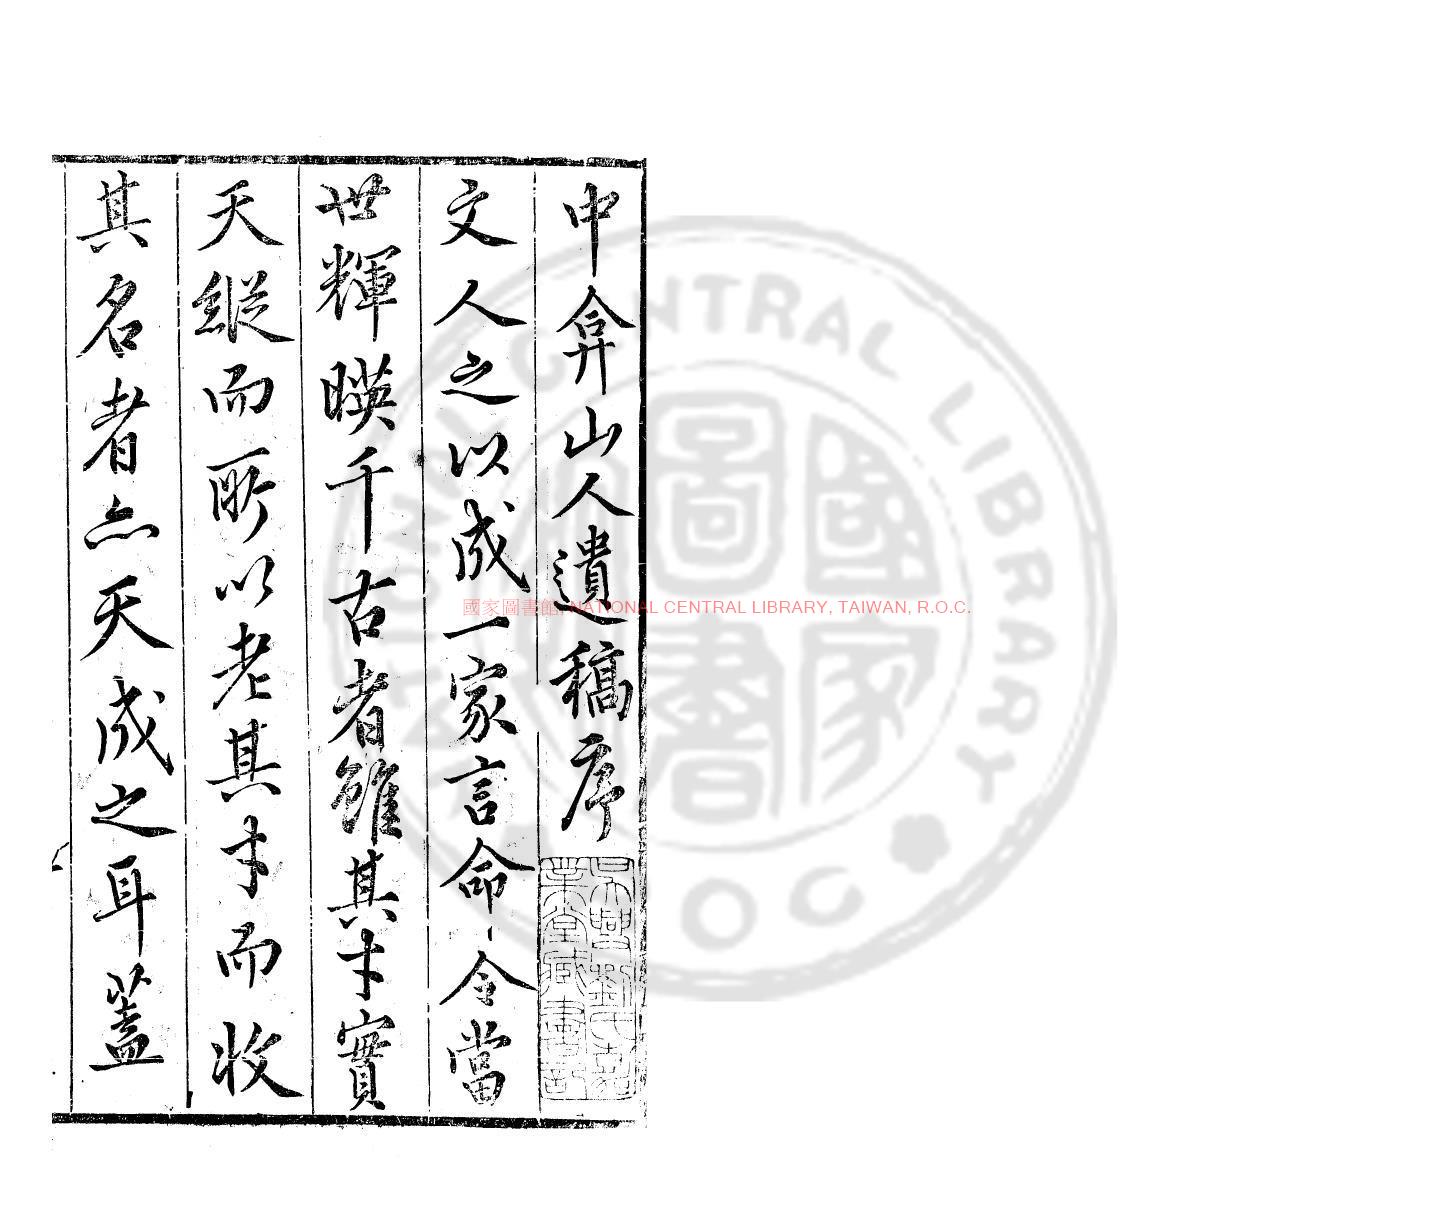 中弇山人遺稿序
文人之以成一家言命令當
世輝暎千古者雖其才實
天縱而所以老其才而收
其名者亦天成之耳蓋
吳興劉氏嘉
業堂藏書記
國家圖書館, NATIONAL CENTRAL LIBRARY, TAIWAN, R.O.C.
NATIONAL CENTRAL LIBRARY
國家
圖書